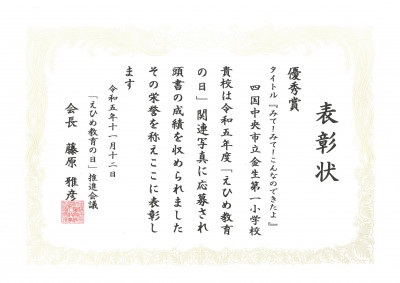 表彰状
優秀賞
タイトル『みてーみてーこんなのできたよ』
四国中央市立金生第一小学校
貴校は令和五年度「えひめ教育
の日」関連写真に応募され
頭書の成績を収められました
その栄誉を称えここに表彰し
ます
令和五年十一月十二日
「えひめ教育の日」推進会議
会長 藤原雅彦